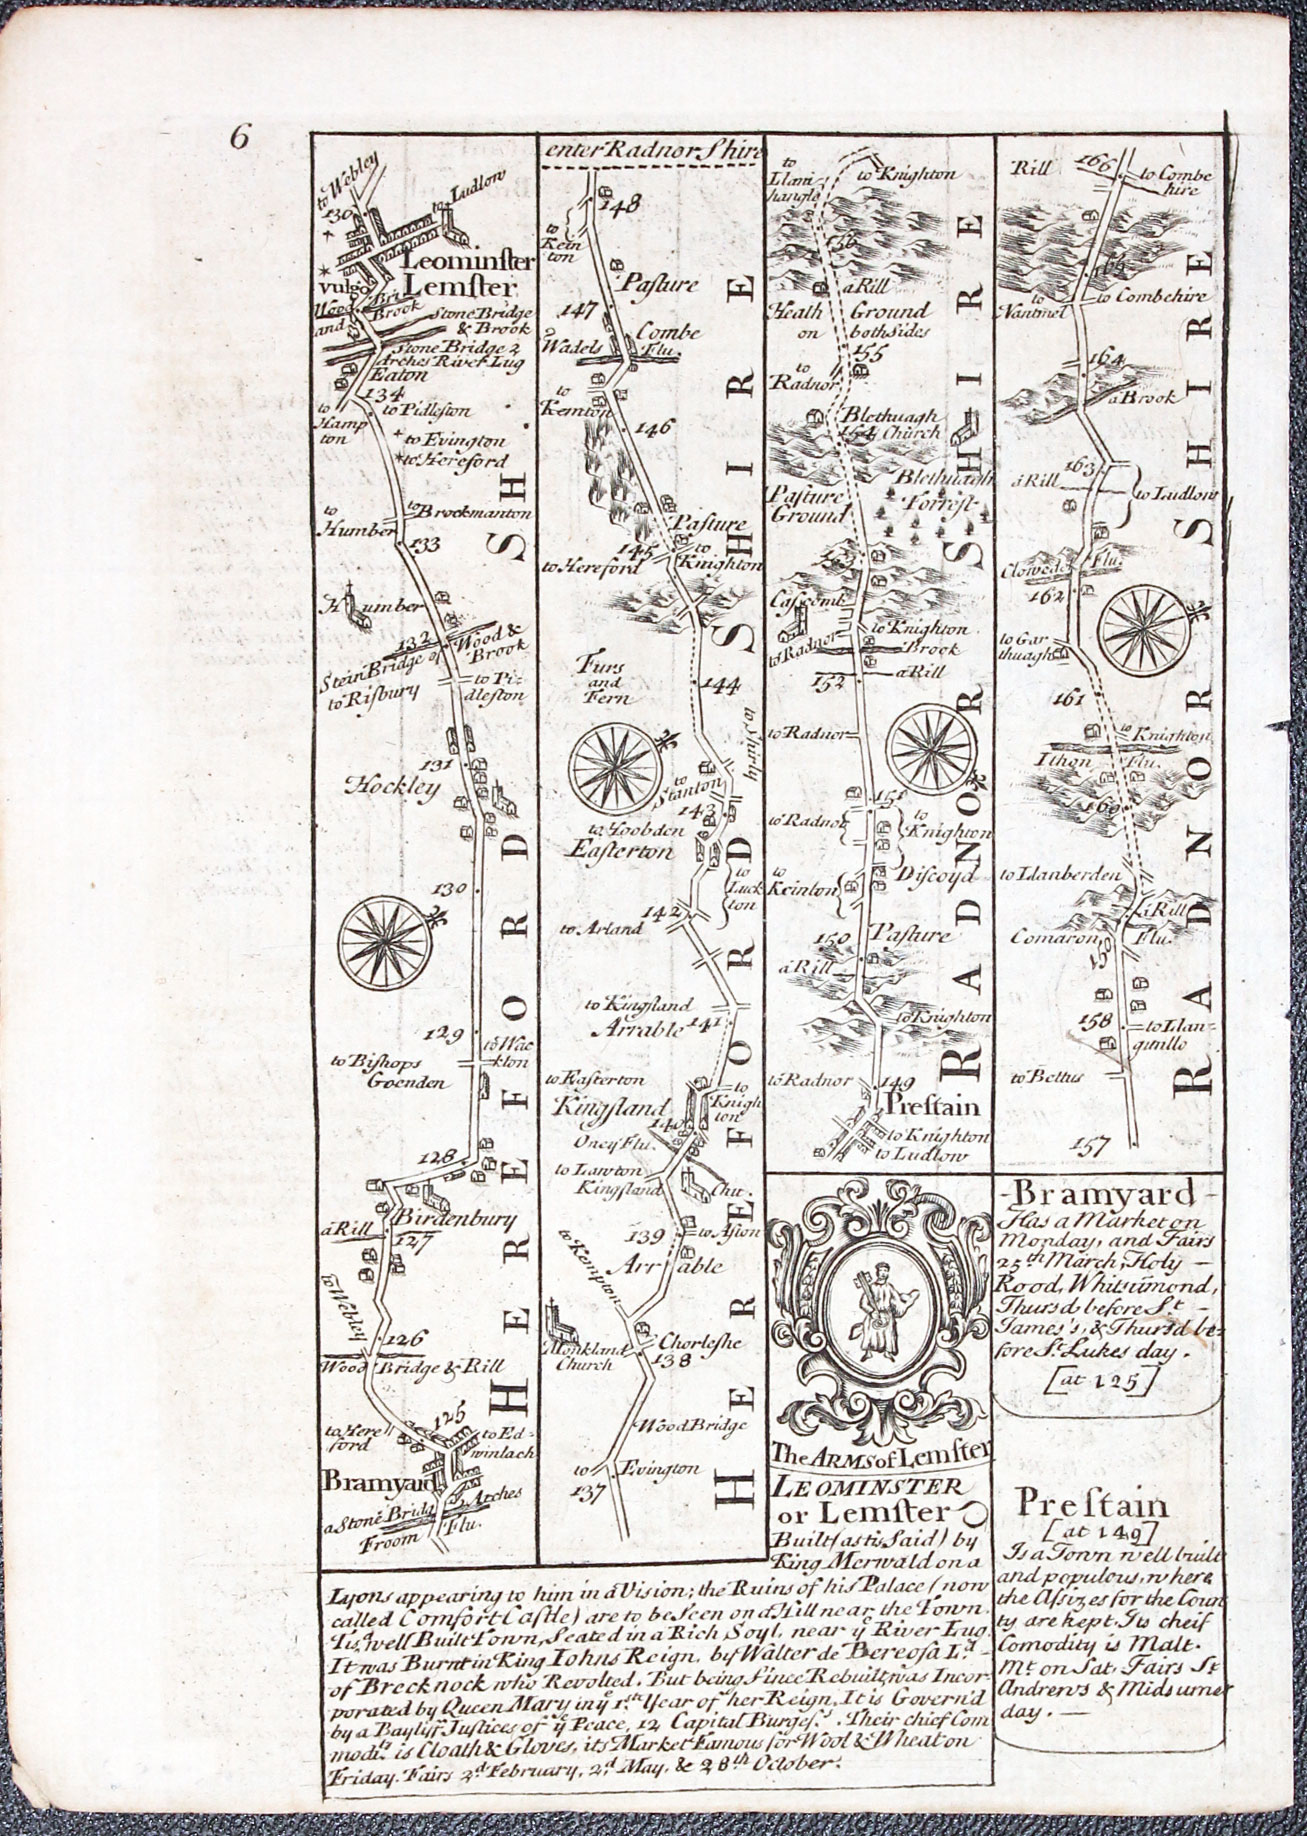 6
to Webley
136
to Ludlow
Leominster
vulgo Lemster
Wood Bri
and Brook
Stone Bridge
& Brook
Stone Bridge 2
Arches River Lug
Eaton
134
to Hamp
ton
to Pidleston
to Evington
to Hereford
to Humber
to Brockmanton
133
Humber
132
Wood &
Brook
Stein Bridge of
to Risbury
to Pi-
dleston
131
Hockley
130
129
to Wac
kton
to Bishops
Goenden
128
Birdenbury
a Rill
127
to Webley
126
Wood Bridge & Rill
125
to Here
ford
to Ed-
winlach
Bramyard
a Stone Bridg 2 Arches
Froom Flu.
HEREFORD SH.
enter Radnor Shire
148
to
Kein
ton
Pasture
147
Wadels
Combe
Flu.
to
Kemton
146
Pasture
145
to Hereford
to
Knighton
Furs
and
Fern
144
to Shirly
to
Stanton
143
to Hoobden
Easterton
to
Luck
ton
142
to Arland
to Kingsland
Arrable 141
to Easterton
to
Knigh
ton
Kingsland
140
Oney Flu.
to Lawton
Kingsland
Chu.
139
to Aston
Arrable
to Kempton
Monkland
Church
Chorleshe
138
Wood Bridge
to Evington
137
HEREFORD SHIRE
to
Llani
hangle
to Knighton
156
a Rill
Heath Ground
on both Sides
155
to
Radnor
Blethuagh
154 Church
Blethuagh
Forrest
Pasture
Ground
153
Cascomb
to Radnor
to Knighton
Brook
a Rill
152
to Radnor
151
to Radnor
to
Knighton
to
Keinton
Discoyd
150 Pasture
a Rill
to Knighton
to Radnor
149
Prestain
to Knighton
to Ludlow
RADNOR SHIRE
Rill
166
to Combe
hire
165
to
Nantmel
to Combehire
164
a Brook
163
a Rill
to Ludlow
Clowede Flu.
162
to Gar
thuagh
161
to
Knighton
Ithon Flu.
160
to Llanberden
a Rill
Comaron Flu.
159
158
to Llan-
gunllo
to Bettus
157
RADNOR SHIRE
The ARMS of Lemster
LEOMINSTER
or Lemster
Built (as tis Said) by
King Merwald on a
Lyons appearing to him in a Vision; the Ruins of his Palace (now
called Comfort Castle) are to be Seen on a Hill near the Town.
Tis a well Built Town, Seated in a Rich Soyl, near ye River Lug.
It was Burnt in King Iohns Reign, by Walter de Bereosa Ld.
of Brecknock who Revolted. But being Since Rebuilt, was Incor-
porated by Queen Mary in ye 1st Year of her Reign, It is Govern'd
by a Bayliff, Justices of ye Peace, 12 Capital Burgess. Their chief Com
modits is Cloath & Gloves, its Market Famous for Wool & Wheat on
Friday. Fairs 2d February, 2d May, & 28th October.
-Bramyard-
Has a Market on
Monday, and Fairs
25th March, Holy-
Rood, Whitsumond,
Thursd before St.-
James's, & Thursd be-
fore St. Lukes day.
[at 125]
Prestain
[at 149]
Is a Town well built
and populous, where
the Assizes for the Coun
ty are kept. Its cheif
Comodity is Malt.
Mt. on Sat. Fairs St.
Andrews & Midsumer
day. —